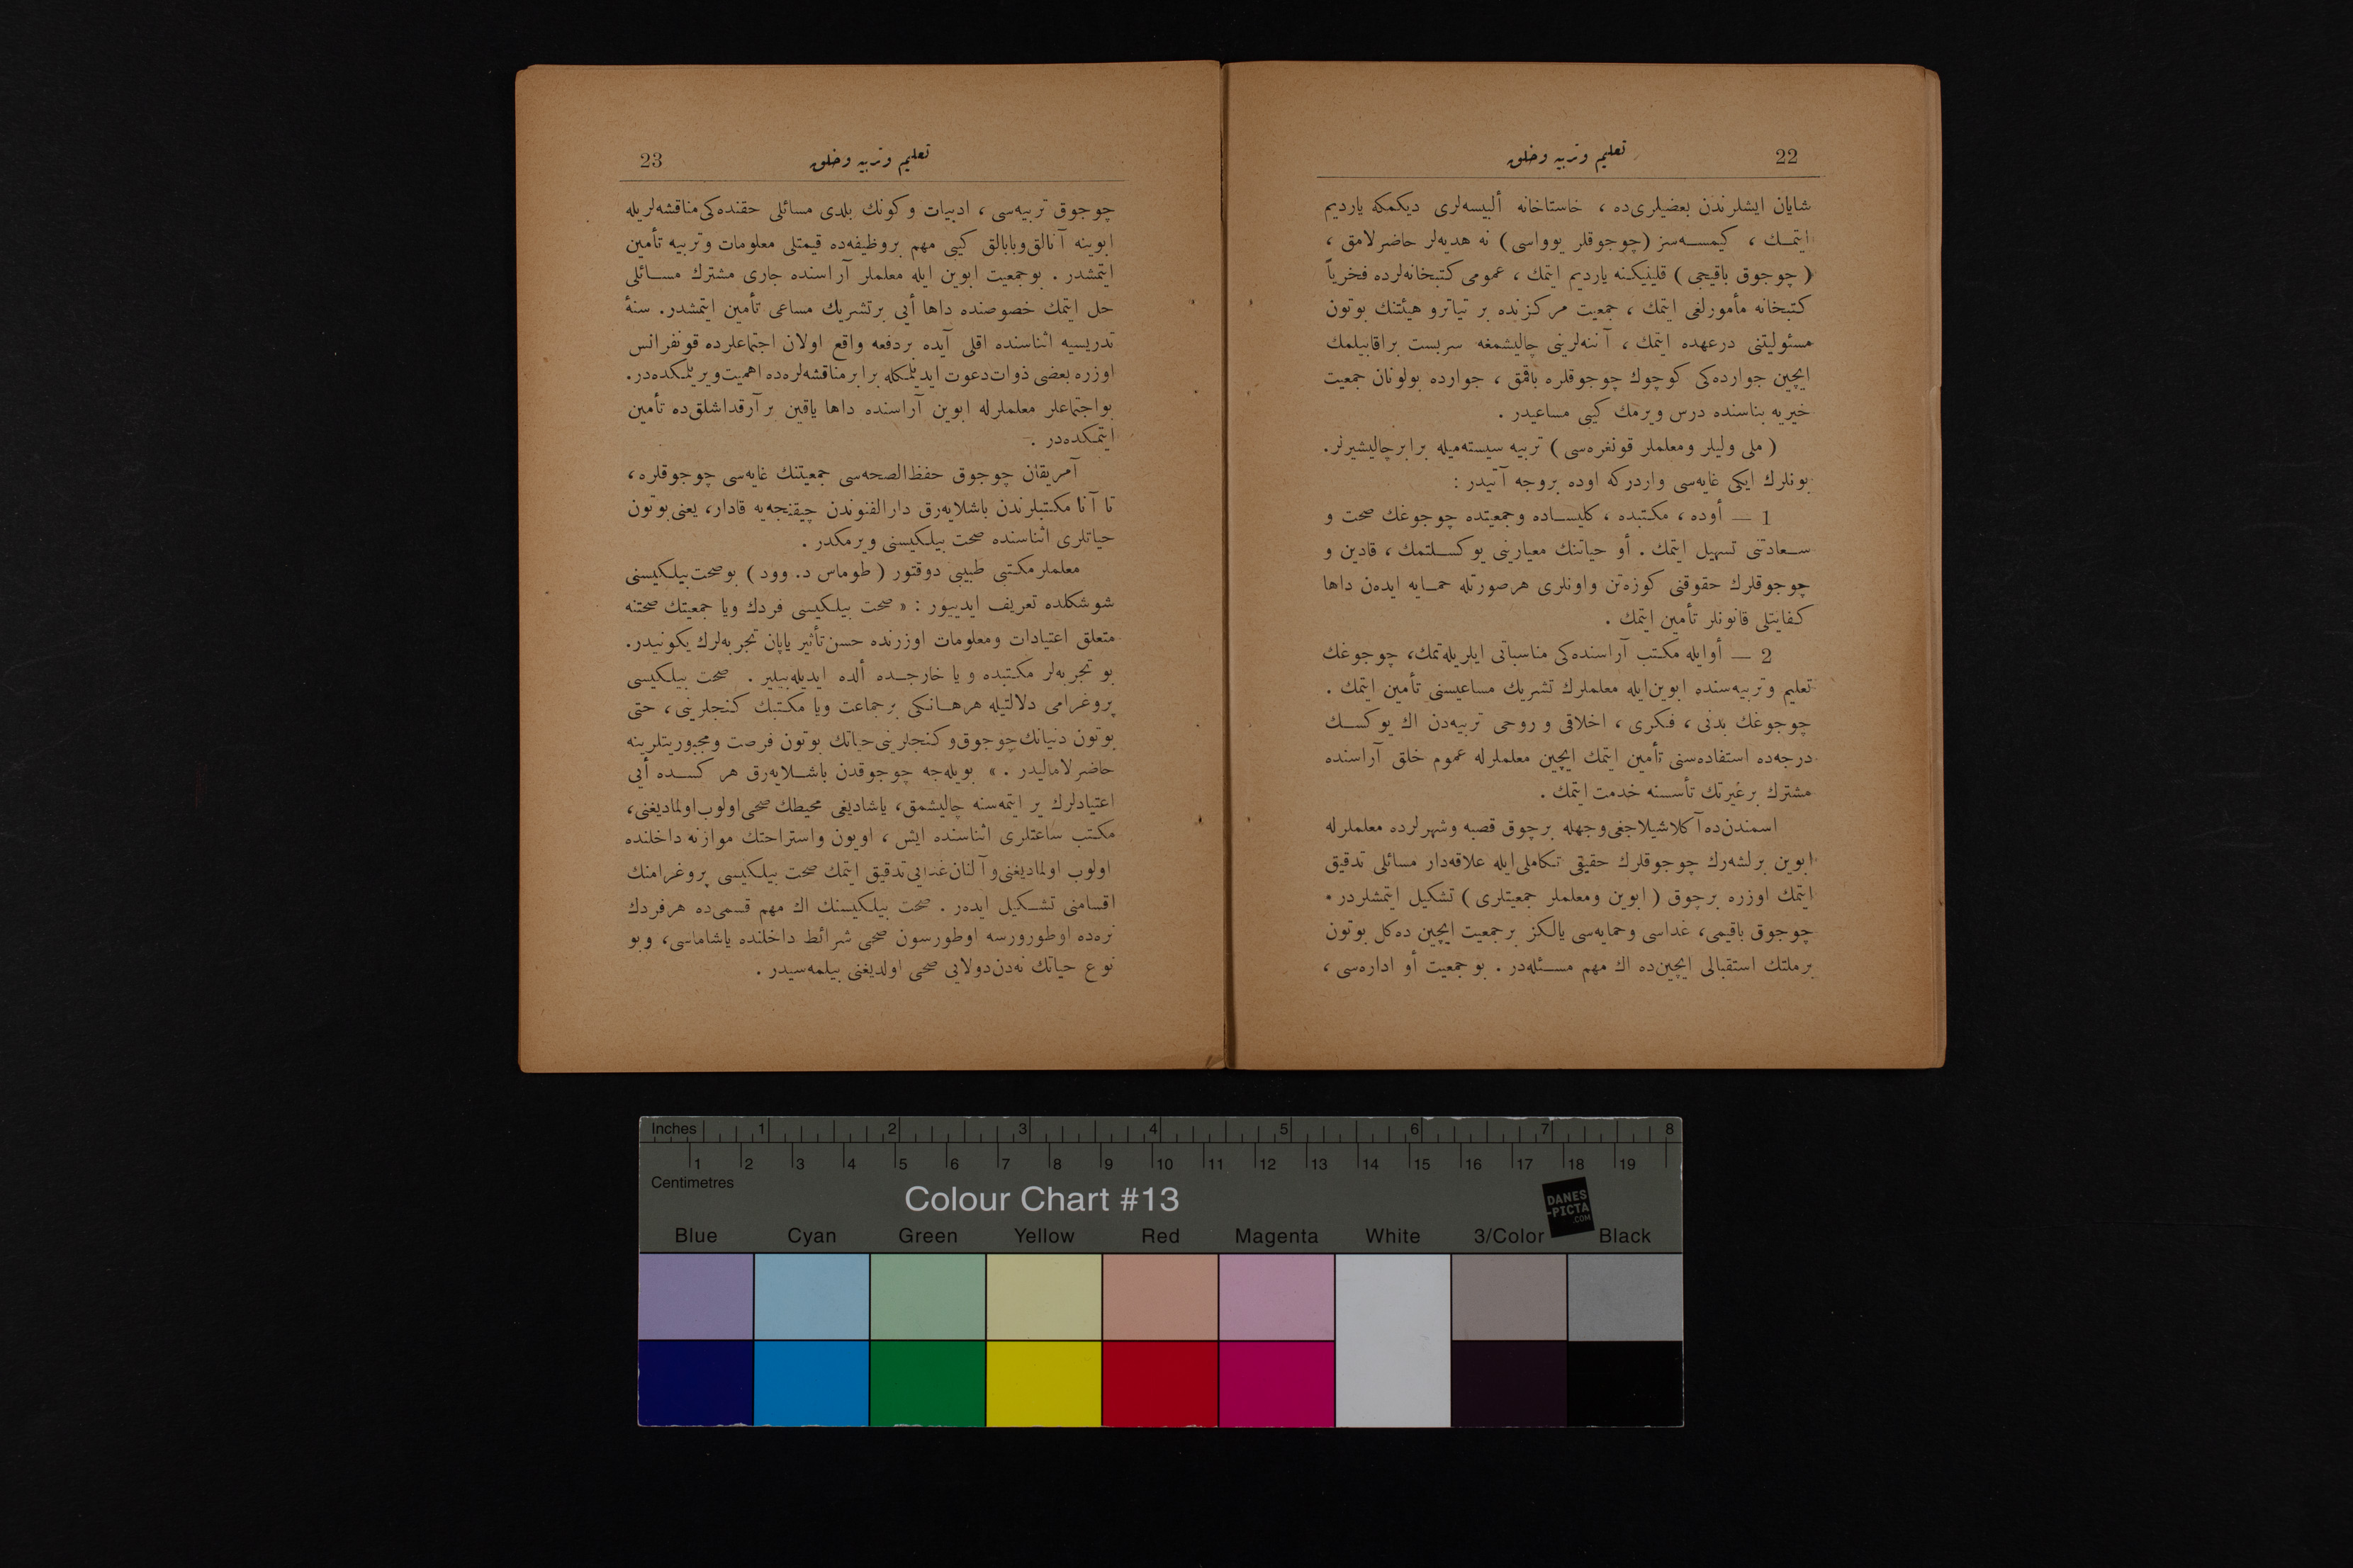 22
تعلیم وتربیه وخلق
شایان ایشلرندن بعضیلری‌ده ، خاستاخانه ألبیسه‌لری دیکمکه یاردیم
ایتمك ، کیمسه‌سز (چوجوقلر یوواسی) نه هدیه‌لر حاضرلامق ،
( چوجوق باقیجی ) قلینیکنه یاردیم ایتمك ، عمومی کتبخانه‌لرده فخریاً
کتبخانه مأمورلغی ایتمك ، جمعیت مرکزنده بر تیاترو هیئتنك بوتون
مسئولیتنی درعهده ایتمك ، آننه‌لرینی چالیشمغه سربست براقابیلمك
ایچین جوارده‌کی کوچوك چوجوقلره باقمق ، جوارده بولونان جمعیت
خیریه بناسنده درس ویرمك کیبی مساعیدر .
( ملی ولیلر ومعلملر قونغره‌سی ) تربیه سیسته‌میله برابر چالیشیرلر.
بونلرك ایکی غایه‌سی واردرکه اوده بروجه آتیدر :
1 — أوده ، مکتبده ، کلیساده وجمعیتده چوجوغك صحت و
سعادتنی تسهیل ایتمك . أو حیاتنك معیارینی یوکسلتمك ، قادین و
چوجوقلرك حقوقنی کوزه‌تن واونلری هرصورتله حمایه ایده‌ن داها
کفایتلی قانونلر تأمین ایتمك .
2 — أوایله مکتب آراسنده‌کی مناسباتی ایلریله‌تمك، چوجوغك
تعلیم وتربیه‌سنده ابوین‌ایله معلملرك تشریك مساعیسنی تأمین ایتمك .
چوجوغك بدنی ، فکری ، اخلاقی و روحی تربیه‌دن اك یوکسك
درجه‌ده استفاده‌سنی تأمین ایتمك ایچین معلملرله عموم خلق آراسنده
مشترك برغیرتك تأسسنه خدمت ایتمك .
اسمندن‌ده آکلاشیلاجغی‌وجهله برچوق قصبه وشهرلرده معلملرله
ابوین برلشه‌رك چوجوقلرك حقیقی تکاملی‌ایله علاقه‌دار مسائلی تدقیق
ایتمك اوزره برچوق ( ابوین ومعلملر جمعیتلری ) تشکیل ایتمشلردر .
چوجوق باقیمی، غداسی وحمایه‌سی یالکز برجمعیت ایچین ده‌کل بوتون
برملتك استقبالی ایچین‌ده اك مهم مسئله‌در . بوجمعیت أو اداره‌سی ،
تعلیم وتربیه وخلق
23
چوجوق تربیه‌سی ، ادبیات وکونك بلدی مسائلی حقنده‌کی مناقشه‌لریله
ابوینه آنالق‌وبابالق کیبی مهم بروظیفه‌ده قیمتلی معلومات وتربیه تأمین
ایتمشدر . بوجمعیت ابوین ایله معلملر آراسنده جاری مشترك مسائلی
حل ایتمك خصوصنده داها أیی برتشریك مساعی تأمین ایتمشدر. سنهٔ
تدریسیه اثناسنده اقلی آیده بردفعه واقع اولان اجتماعلرده قونفرانس
اوزره بعضی ذوات‌دعوت ایدیلمکله برابر مناقشه‌لره‌ده اهمیت‌ویریلمکده‌در.
بواجتماعلر معلملرله ابوین آراسنده داها یاقین برآرقداشلق‌ده تأمین
ایتمکده‌در .
آمریقان چوجوق حفظ‌الصحه‌سی جمعیتنك غایه‌سی چوجوقلره ،
تا آنا مکتبلرندن باشلایه‌رق دارالفنوندن چیقنجه‌یه قادار، یعنی بوتون
حیاتلری اثناسنده صحت بیلکیسنی ویرمکدر .
معلملر مکتبی طبیبی دوقتور ( طوماس د. وود ) بوصحت‌بیلکیسنی
شوشکلده تعریف ایدییور : « صحت بیلکیسی فردك ویا جمعیتك صحتنه
متعلق اعتیادات ومعلومات اوزرنده حسن‌تأثیر یاپان تجربه‌لرك یکونیدر.
بو تجربه‌لر مکتبده و یا خارجده ألده ایدیله‌بیلیر . صحت بیلکیسی
پروغرامی دلالتیله هرهانکی برجماعت ویا مکتبك کنجلرینی ، حتی
بوتون دنیانك‌چوجوق‌وکنجلرینی‌حیاتك بوتون فرصت ومجبوریتلرینه
حاضرلامالیدر . » بویله‌جه چوجوقدن باشلایه‌رق هر کسده أیی
اعتیادلرك یر ایتمه‌سنه چالیشمق، یاشادیغی محیطك صحی‌اولوب‌اولمادیغنی،
مکتب ساعتلری اثناسنده ایش ، اویون واستراحتك موازنه داخلنده
اولوب اولمادیغنی‌وآلنان‌غدایی‌تدقیق ایتمك صحت بیلکیسی پروغرامنك
اقسامنی تشکیل ایده‌ر . صحت بیلکیسنك اك مهم قسمی‌ده هرفردك
نره‌ده اوطورورسه اوطورسون صحی شرائط داخلنده یاشاماسی، وبو
نوع حیاتك نه‌دن‌دولایی صحی اولدیغنی بیلمه‌سیدر .
Inches 1 2 3 4 5 6 7 8
1 2 3 4 5 6 7 8 9 10 11 12 13 14 15 16 17 18 19
Centimetres
Colour Chart #13
DANES
-PICTA
.COM
Blue Cyan Green Yellow Red Magenta White 3/Color Black